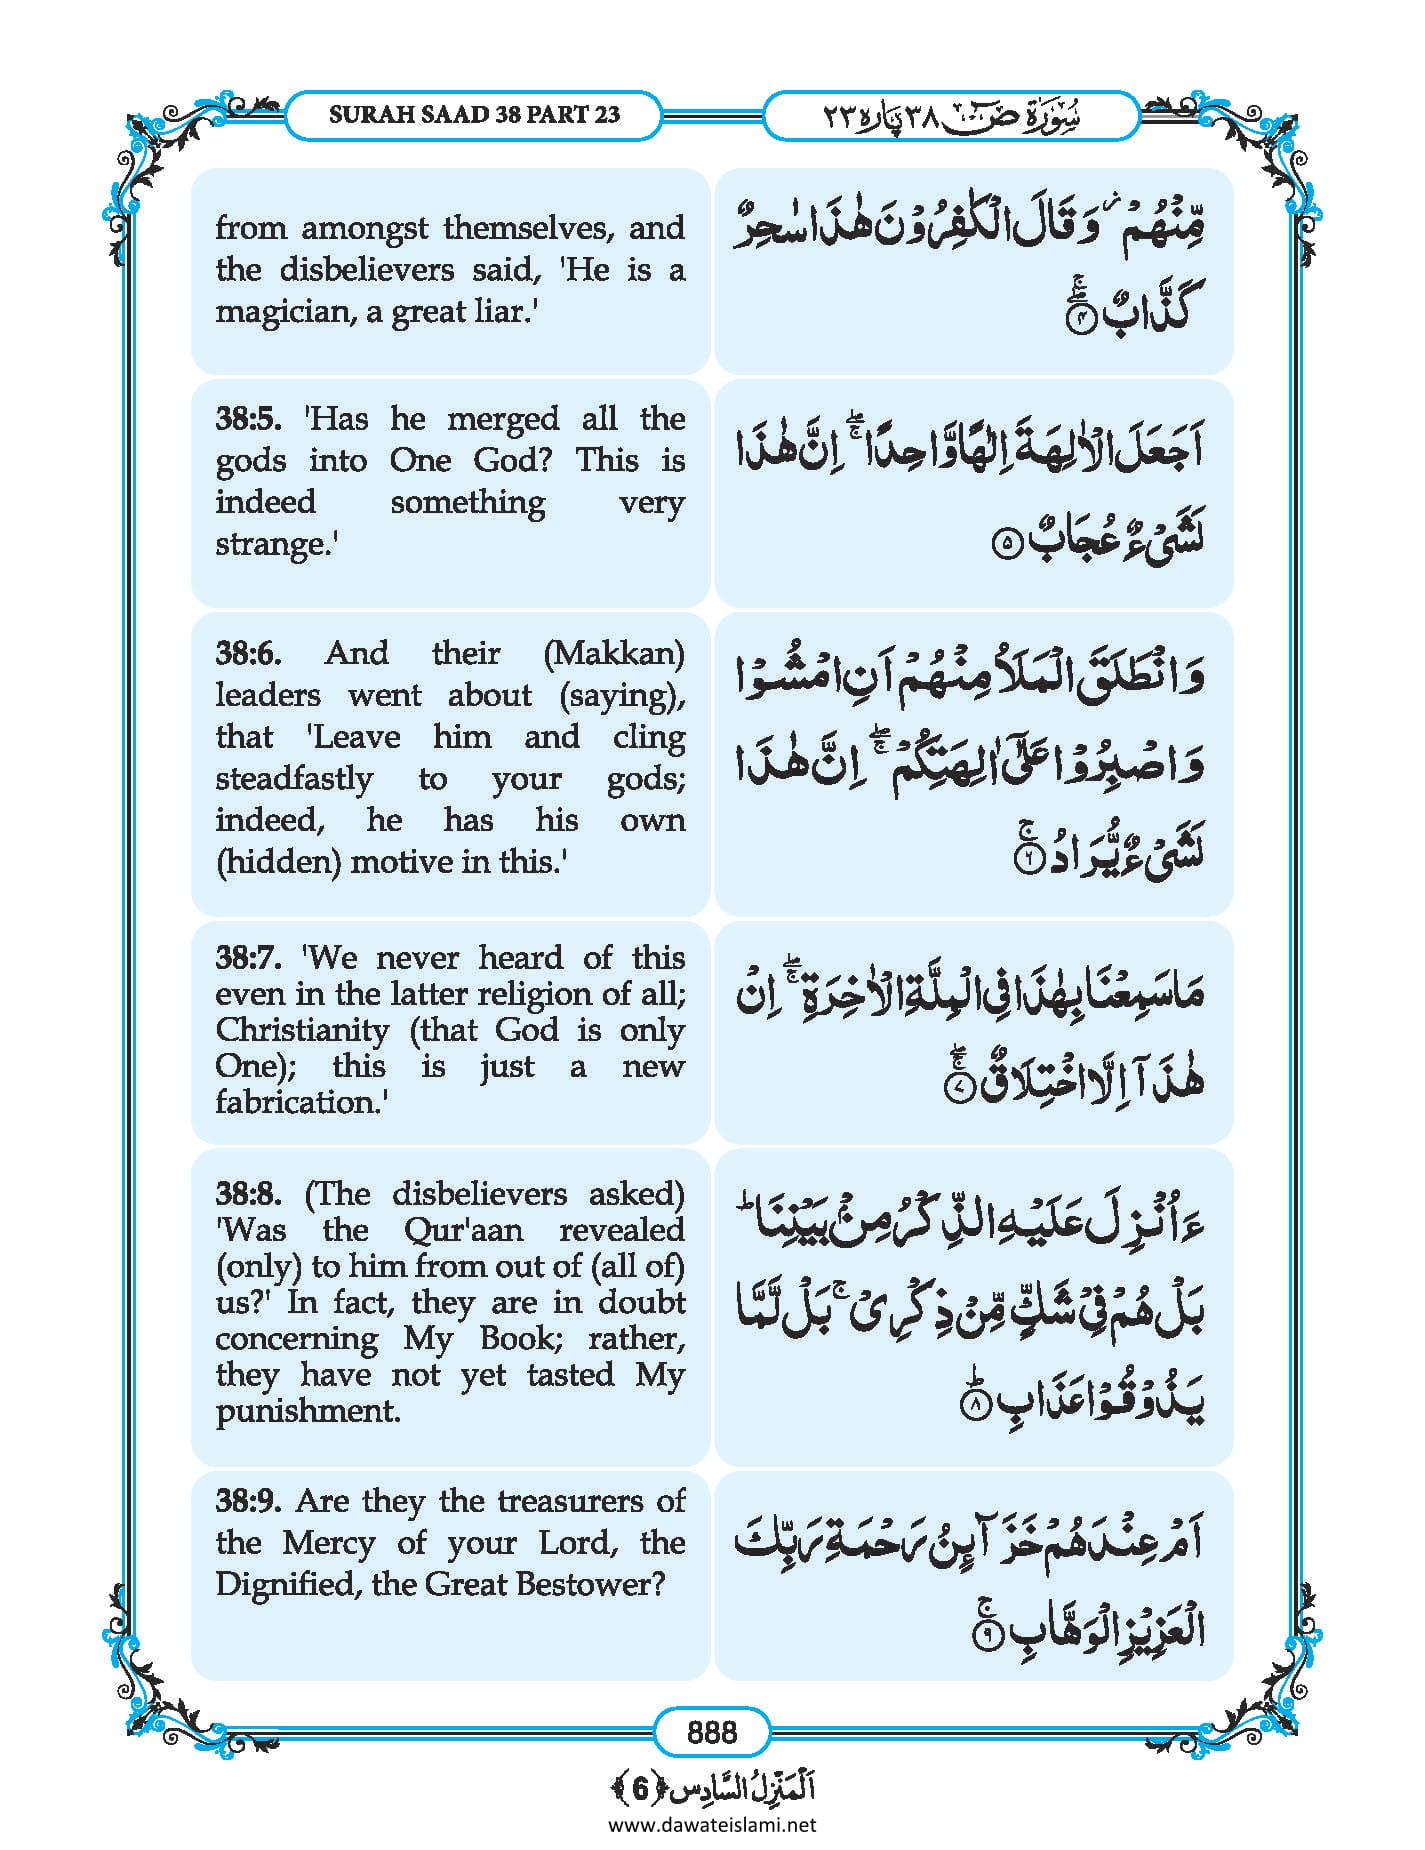 SURAH SAAD 38 PART 23
سُوۡرَۃُ صٓ ٣٨ پارہ ٢٣
from amongst themselves, and
the disbelievers said, 'He is a
magician, a great liar.'
مِّنۡهُمۡ ۫ وَ قَالَ الۡكٰفِرُوۡنَ هٰذَا سٰحِرٌ
كَذَّابٌ ﴿ۖۚ۴﴾
38:5. 'Has he merged all the
gods into One God? This is
indeed something very
strange.'
اَجَعَلَ الۡاٰلِهَةَ اِلٰهًا وَّاحِدًا ۖۚ اِنَّ هٰذَا
لَشَیۡءٌ عُجَابٌ ﴿۵﴾
38:6. And their (Makkan)
leaders went about (saying),
that 'Leave him and cling
steadfastly to your gods;
indeed, he has his own
(hidden) motive in this.'
وَ انۡطَلَقَ الۡمَلَاُ مِنۡهُمۡ اَنِ امۡشُوۡا
وَ اصۡبِرُوۡا عَلٰۤی اٰلِهَتِكُمۡ ۖۚ اِنَّ هٰذَا
لَشَیۡءٌ یُّرَادُ ﴿ۚ۶﴾
38:7. 'We never heard of this
even in the latter religion of all;
Christianity (that God is only
One); this is just a new
fabrication.'
مَا سَمِعۡنَا بِهٰذَا فِی الۡمِلَّةِ الۡاٰخِرَةِ ۖۚ اِنۡ
هٰذَاۤ اِلَّا اخۡتِلَاقٌ ﴿ۖۚ۷﴾
38:8. (The disbelievers asked)
'Was the Qur'aan revealed
(only) to him from out of (all of)
us?' In fact, they are in doubt
concerning My Book; rather,
they have not yet tasted My
punishment.
ءَاُنۡزِلَ عَلَیۡهِ الذِّكۡرُ مِنۡۢ بَیۡنِنَا ؕ
بَلۡ هُمۡ فِیۡ شَكٍّ مِّنۡ ذِكۡرِیۡ ۚ بَلۡ لَّمَّا
یَذُوۡقُوۡا عَذَابِ ﴿ؕ۸﴾
38:9. Are they the treasurers of
the Mercy of your Lord, the
Dignified, the Great Bestower?
اَمۡ عِنۡدَهُمۡ خَزَآئِنُ رَحۡمَةِ رَبِّكَ
الۡعَزِیۡزِ الۡوَهَّابِ ﴿ۚ۹﴾
888
اَلۡمَنۡزِلُ السَّادِس ﴿6﴾
www.dawateislami.net